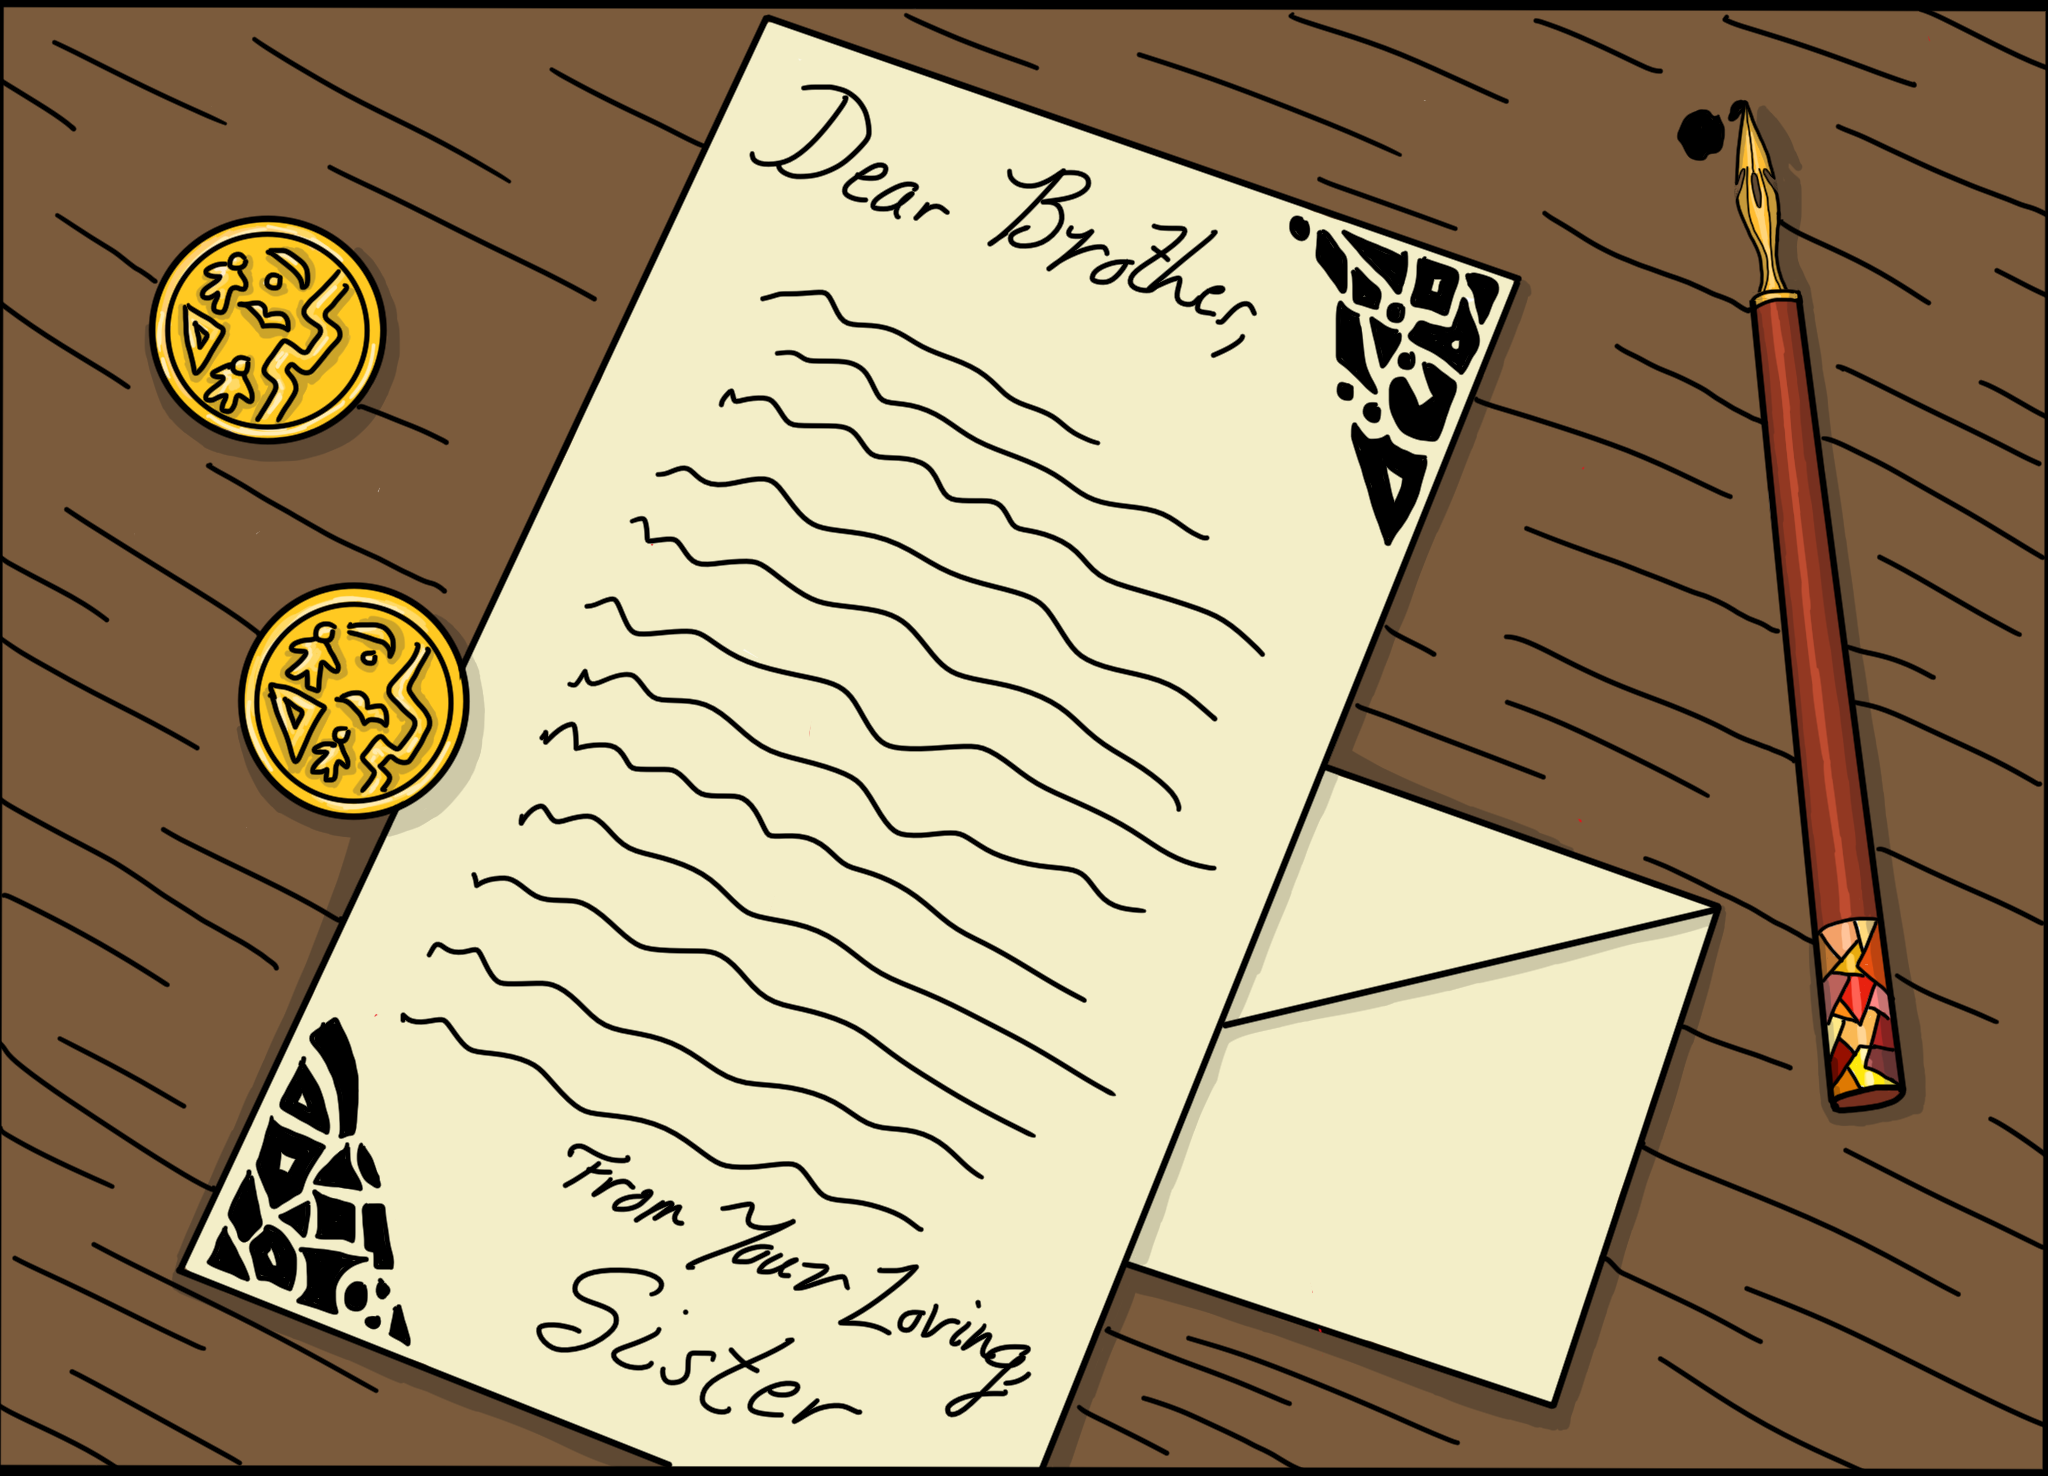 Dear Brother,
From Your Loving,
Sister